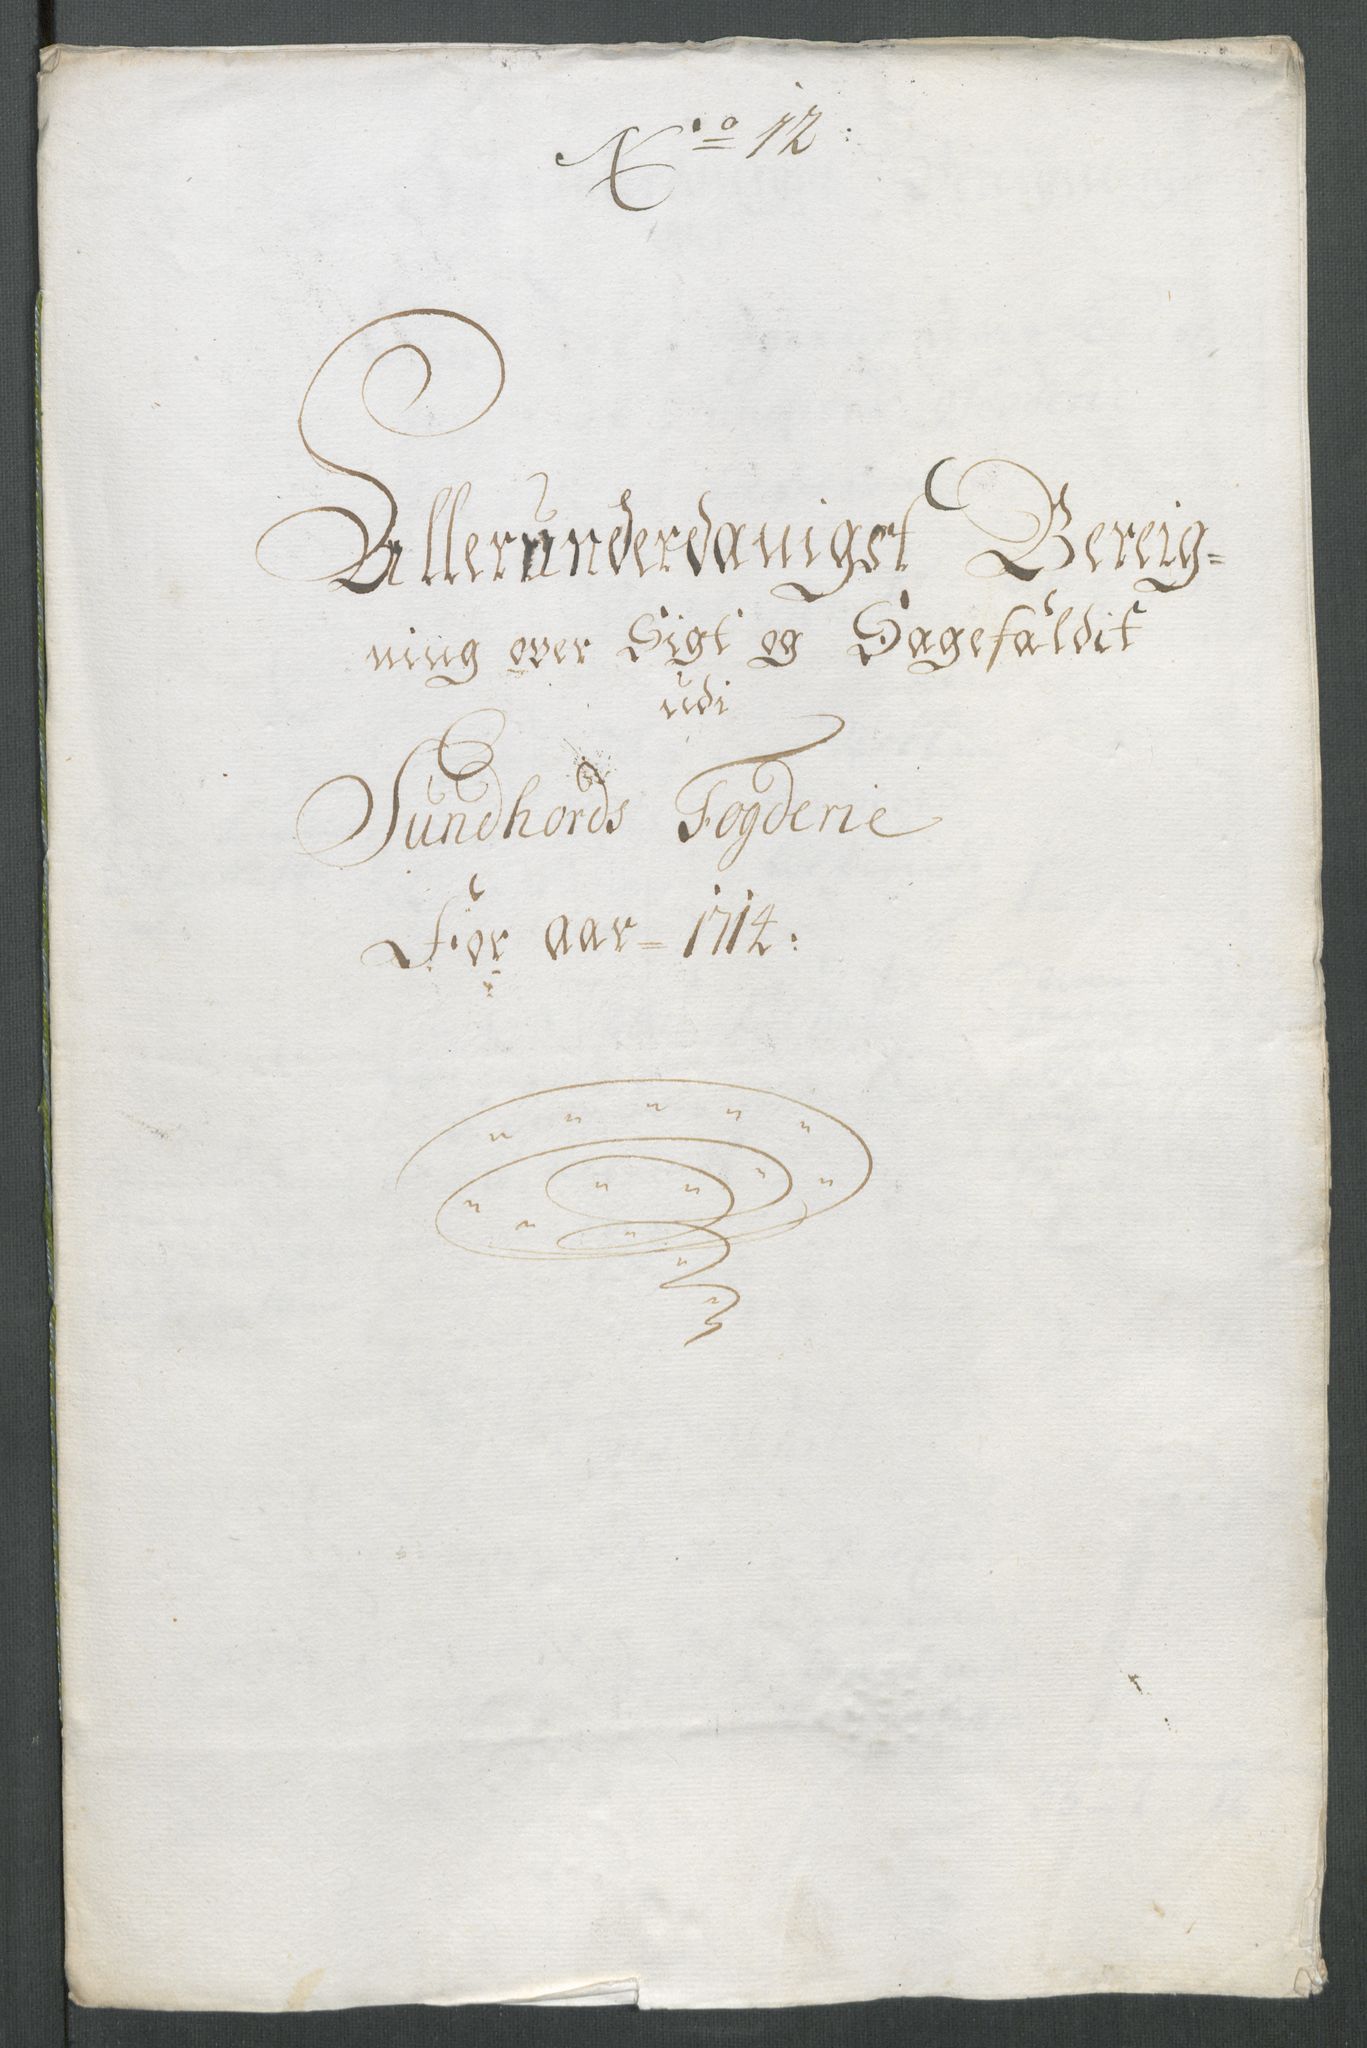 No 12:
Allerunderdanigst Bereig=
ning over Sigt og Sagefaldit
udi
Sundhords Fogderie
For aar = 1714: